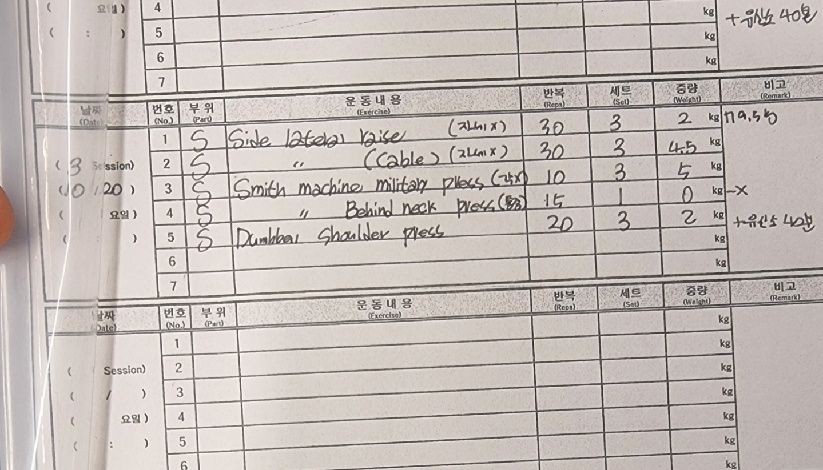 요일) 4 kg +유산소 40분
( : ) 5 kg
6 kg
7
날짜 (Date) 번호 (No.) 부위 (Part) 운동내용 (Exercise) 반복 (Reps) 세트 (Set) 중량 (Weight) 비고 (Remark)
1 S Side lateral raise 30 3 2 kg
( 3 Session) 2 S 〃 (Cable) 30 3 4.5 kg
(10 / 20 ) 3 S Smith machine military press 10 3 5 kg
( 요일) 4 S 〃 Behind neck press 15 1 0 kg -X
( ) 5 S Dumbbel shoulder press 20 3 2 kg +유산소 40분
6 kg
7 kg
날짜 (Date) 번호 (No.) 부위 (Part) 운동내용 (Exercise) 반복 (Reps) 세트 (Set) 중량 (Weight) 비고 (Remark)
1 kg
( Session) 2 kg
( / ) 3 kg
( 요일) 4 kg
( : ) 5 kg
6 kg